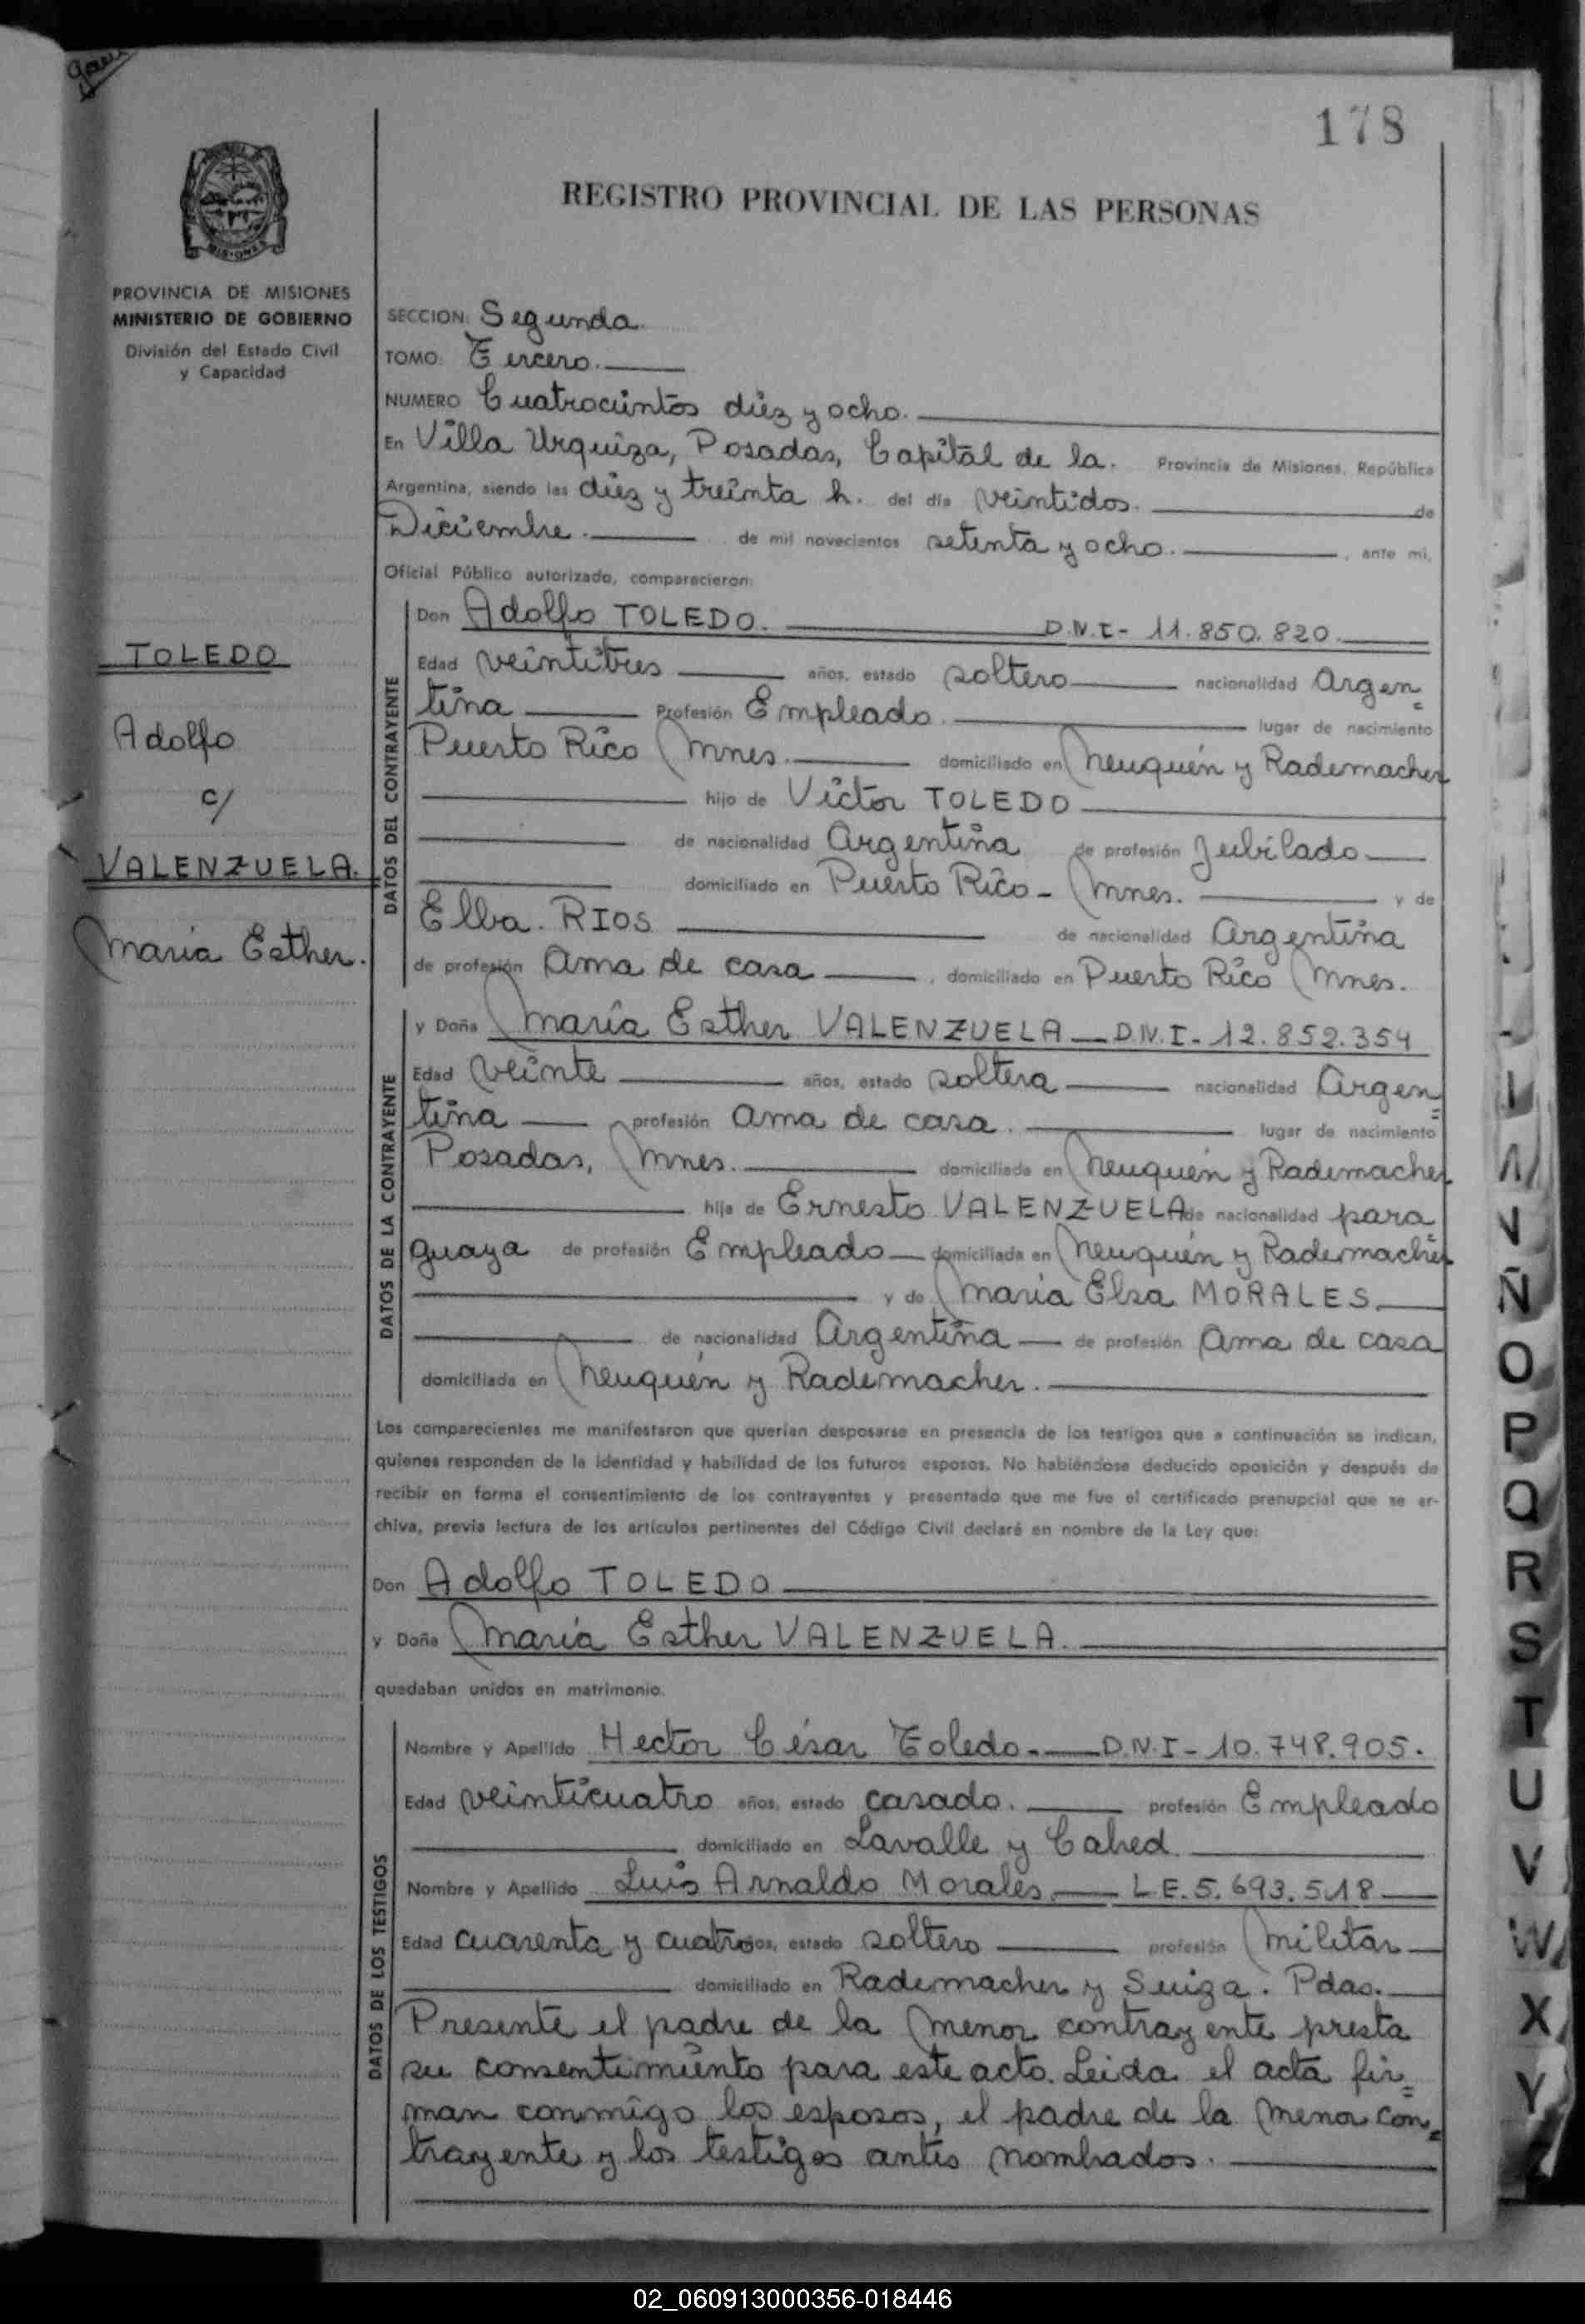 178
REGISTRO PROVINCIAL DE LAS PERSONAS
MISIONES
PROVINCIA DE MISIONES
MINISTERIO DE GOBIERNO
División del Estado Civil
y Capacidad
TOLEDO
Adolfo
c/
VALENZUELA.
Maria Esther.
SECCION: Segunda.
TOMO: Tercero.
NUMERO Cuatrocientos diez y ocho.
En Villa Urquiza, Posadas, Capital de la. Provincia de Misiones, República
Argentina, siendo las diez y treinta h. del día veintidos. de
Diciembre. de mil novecientos setenta y ocho. , ante mi,
Oficial Público autorizado, comparecieron:
DATOS DEL CONTRAYENTE
Don Adolfo TOLEDO. D.N.I- 11.850.820.
Edad veintitres años, estado soltero nacionalidad Argen=
tina Profesión Empleado. lugar de nacimiento
Puerto Rico Mnes. domiciliado en Neuquén y Rademacher
hijo de Victor TOLEDO
de nacionalidad Argentina de profesión Jubilado
domiciliado en Puerto Rico - Mnes. y de
Elba. RIOS de nacionalidad Argentina
de profesión Ama de casa , domiciliado en Puerto Rico Mnes.
DATOS DE LA CONTRAYENTE
y Doña María Esther VALENZUELA D.N.I- 12.852.354
Edad Veinte años, estado soltera nacionalidad Argen=
tina profesión Ama de casa. lugar de nacimiento
Posadas, Mnes. domiciliada en Neuquén y Rademacher
hija de Ernesto VALENZUELA de nacionalidad para
guaya de profesión Empleado domiciliada en Neuquén y Rademacher
y de Maria Elsa MORALES
de nacionalidad Argentina de profesión Ama de casa
domiciliada en Neuquén y Rademacher.
Los comparecientes me manifestaron que querían desposarse en presencia de los testigos que a continuación se indican,
quienes responden de la identidad y habilidad de los futuros esposos. No habiéndose deducido oposición y después de
recibir en forma el consentimiento de los contrayentes y presentado que me fue el certificado prenupcial que se ar-
chiva, previa lectura de los artículos pertinentes del Código Civil declaré en nombre de la Ley que:
Don Adolfo TOLEDO
y Doña María Esther VALENZUELA.
quedaban unidos en matrimonio.
DATOS DE LOS TESTIGOS
Nombre y Apellido Hector César Toledo. D.N.I- 10.748.905.
Edad veinticuatro años, estado casado. profesión Empleado
domiciliado en Lavalle y Cahed.
Nombre y Apellido Luis Arnaldo Morales. L.E. 5.693.518
Edad cuarenta y cuatro años, estado soltero profesión Militar
domiciliado en Rademacher y Suiza. Pdas.
Presente el padre de la menor contrayente presta
su consentimiento para este acto. Leida el acta fir=
man conmigo los esposos, el padre de la menor con=
trayente y los testigos antes nombrados.
L
M
N
Ñ
O
P
Q
R
S
T
U
V
W
X
Y
02_060913000356-018446